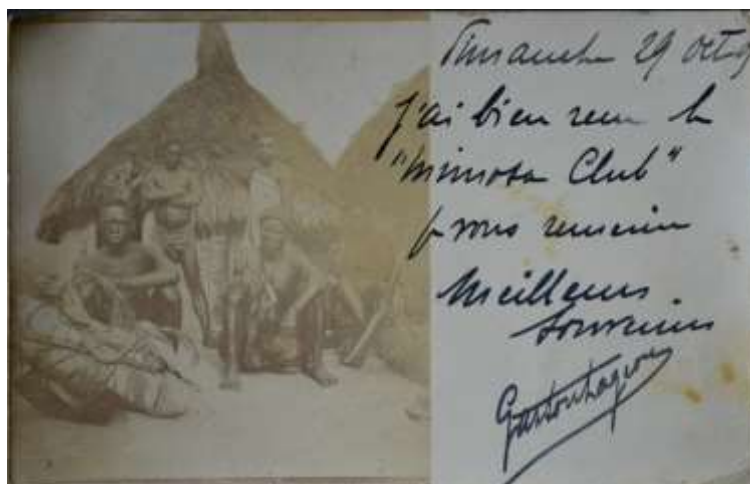 Dimanche 29 oct
J'ai bien reçu le
"Mimosa Club"
je vous remercie
Meilleurs
Souvenirs